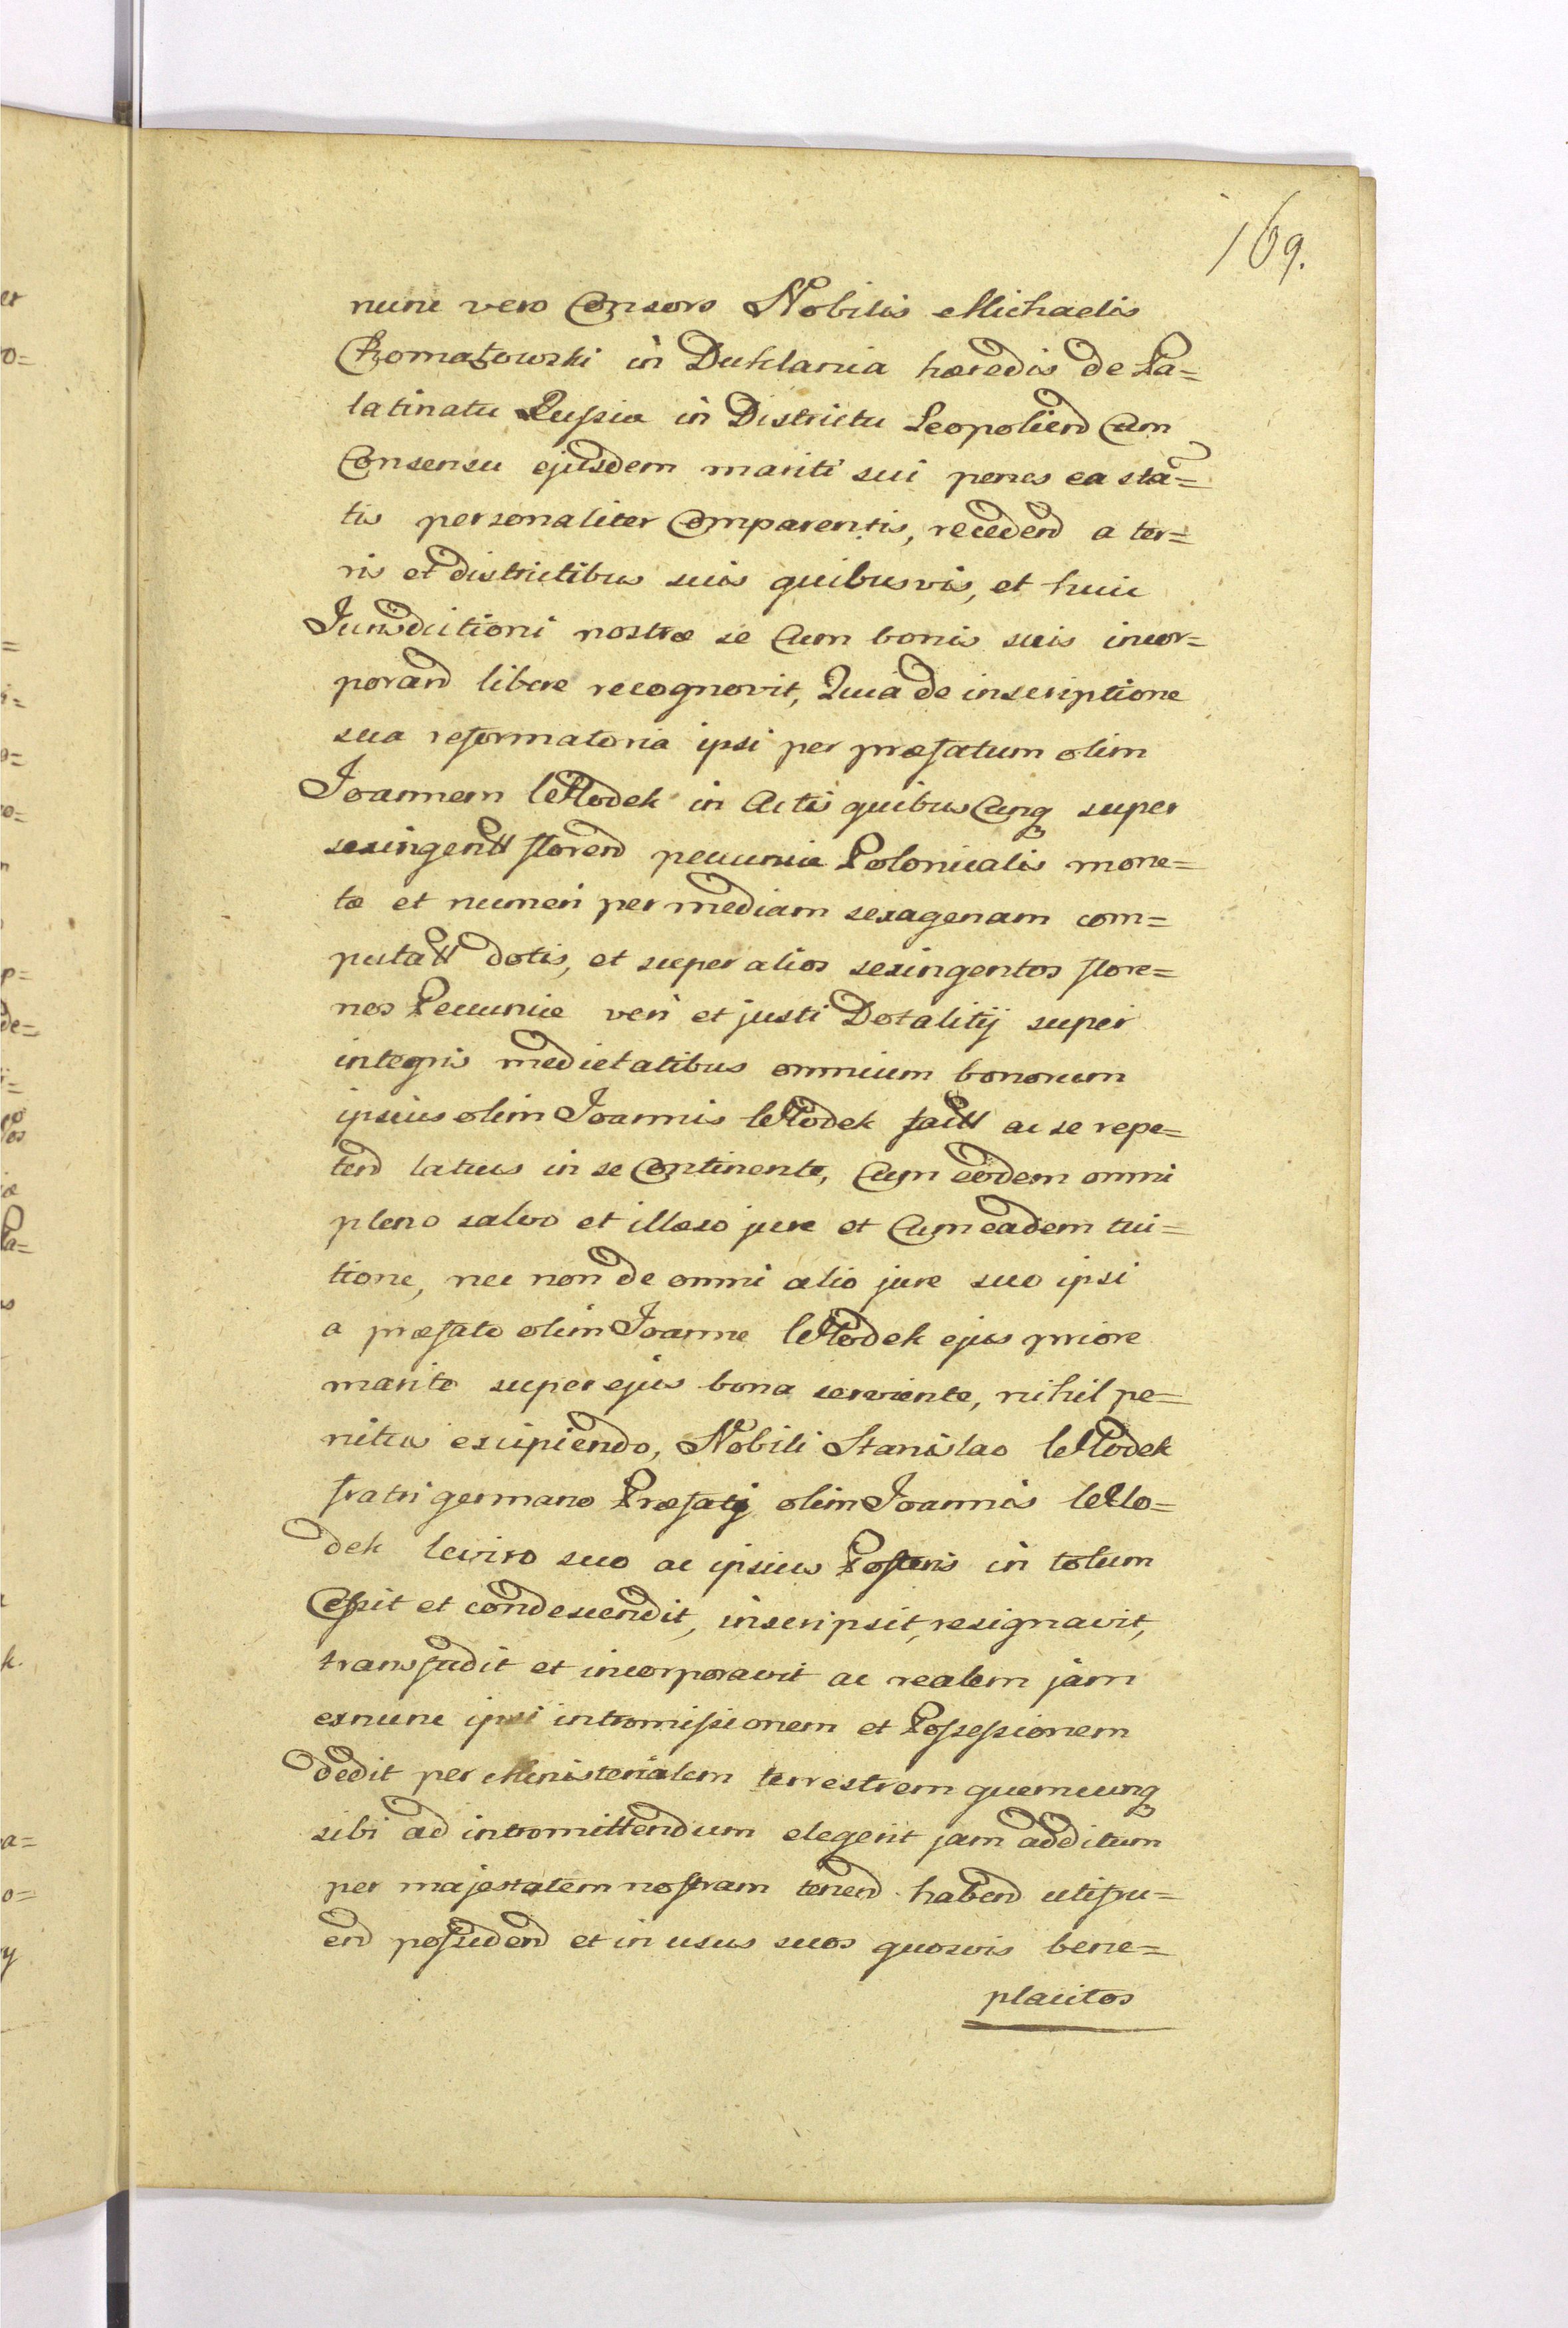 169.
nunc vero Consors Nobilis Michaelis
in Duklania hæredis de Pa=
latinatu Russiæ in Districtu Leopoliend Cum
Consensu ejusdem mariti sui penes ea sta=
tis personaliter Comparentis, recedend a ter=
ris et districtibus suis quibusvis, et huic
Jurisdictioni nostræ se Cum bonis suis incor=
porand libere recognovit, Quia de inscriptione
sua reformatoria ipsi per præfatum olim
Joannem Wlodek in Actis quibus Cunq super
sexingentt floren͠d pecuniæ Polonicalis mone=
tæ et numeri per mediam sexagenam com=
putatt dotis, et super alios sexingentos flore=
nos Pecuniæ veri et justi Dotalitij super
integris medietatibus omnium bonorum
ipsius olim Joannis Wlodek factt ac se repe=
tend latius in se Continente, Cum eodem omni
pleno salvo et illæso jure et Cum eadem tui=
tione, nec non de omni alio jure suo ipsi
a præfato olim Joanne Wlodek ejus priore
marito super ejus bona serviente, nihil pe=
nitus excipiendo, Nobili Stanislao Wlodek
fratri germano Præfatij olim Joannis Wlo=
dek leviro suo ac ipsius Posteris in totum
Cessit et condescendit, inscripsit, resignavit,
transfudit et incorporavit ac realem jam
exnunc ipsi intromissionem et Possessionem
dedit per Ministerialem terrestrem quemcunq
sibi ad intromittendum elegerit jam additum
per majestatem nostram tenend habend utifru=
end possidend et in usus suos quosvis bene=
placitos
er
ro=
=
i=
o=
ro=
n
p=
de=
i=
os
iæ
Pa=
us
k.
a=
o=
y